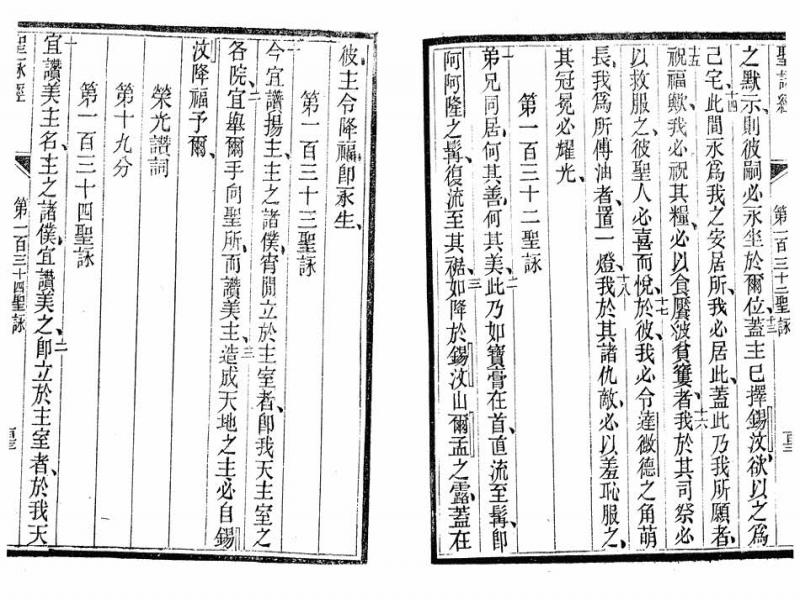 聖詠經 第一百三十二聖詠
之默示則彼嗣必永坐於爾位、十三蓋主已擇錫汶欲以之爲
己宅、十四此間永爲我之安居所、我必居此、蓋此乃我所願者、
十五祝福歟、我必祝其糧、必以食饜彼貧窶者、十六我於其司祭必
以救服之、彼聖人必喜而悅於彼、十七我必令達微德之角萌
長、我爲所傅油者、置一燈、十八我於其諸仇敵、必以羞恥服之、
其冠冕必耀光、
第一百三十二聖詠
一弟兄同居、何其善、何其美、二此乃如寶膏在首、直流至髯、卽
阿阿隆之髯、復流至其裾、三如降於錫汶山爾孟之露、蓋在
彼主令降福、卽永生、
第一百三十三聖詠
一今宜讚揚主、主之諸僕宵間立於主室者、卽我天主室之
各院、二宜舉爾手向聖所、而讚美主、三造成天地之主必自錫
汶降福予爾、
榮光讚詞
第十九分
第一百三十四聖詠
一宜讚美主名、主之諸僕宜讚美之、二卽立於主室者、於我天
聖詠經 第一百三十四聖詠